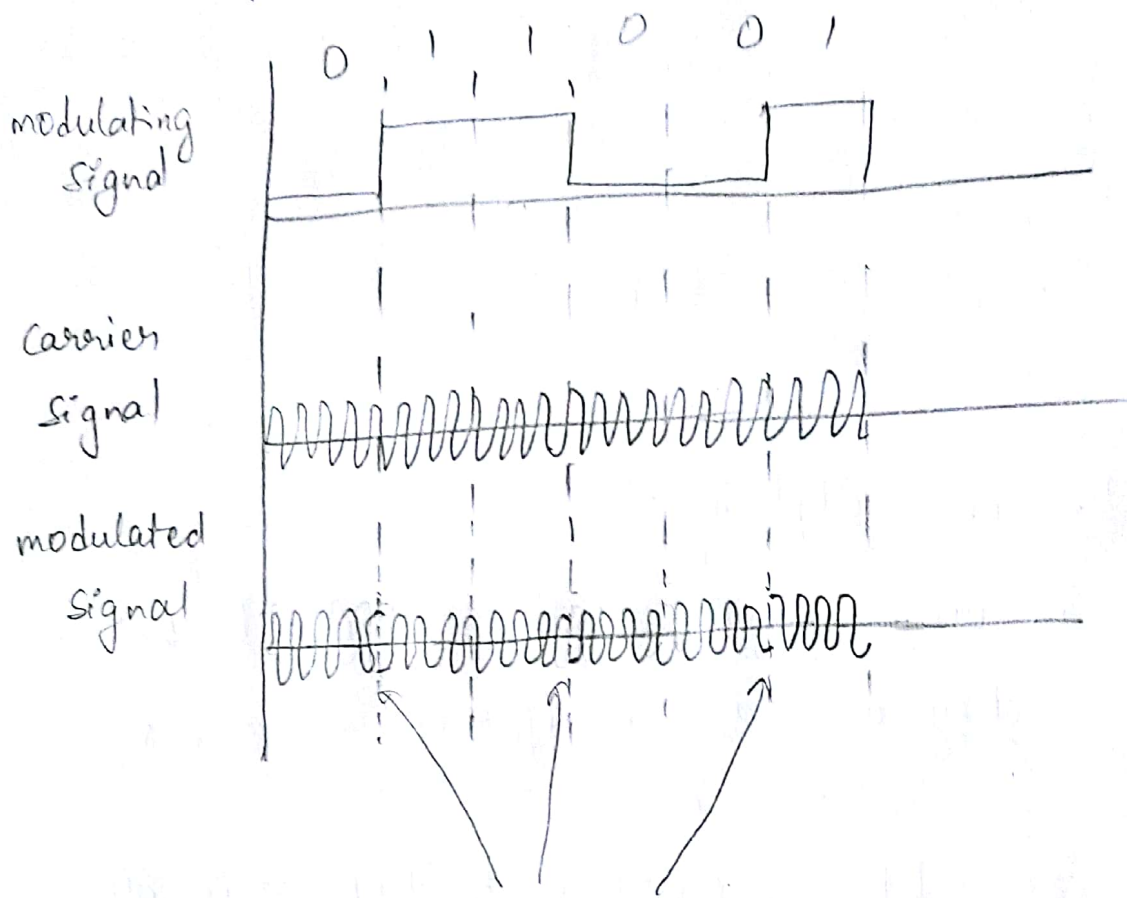 0 1 1 0 0 1
modulating
signal
Carrier
signal
modulated
signal